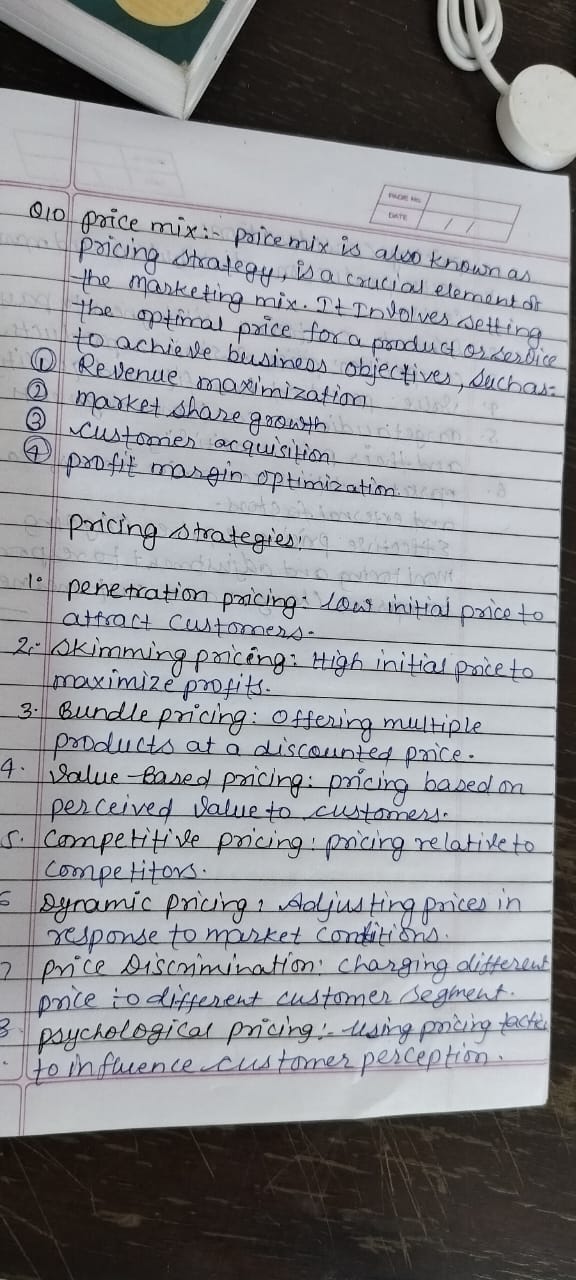 PAGE No.
DATE / /
Q10 price mix:- price mix is also known as
pricing strategy, is a crucial element of
the marketing mix. It Involves setting
the optimal price for a product or service
to achieve business objectives, such as:-
① Revenue maximization
② market share growth
③ customer acquisition
④ profit margin optimization.
pricing strategies:
1. penetration pricing: low initial price to
attract customers.
2.- Skimming pricing: High initial price to
maximize profits.
3. Bundle pricing: Offering multiple
products at a discounted price.
4. Value-Based pricing: pricing based on
perceived value to customers.
5. Competitive pricing: pricing relative to
competitors.
6 Dynamic pricing: Adjusting prices in
response to market conditions.
7 price Discrimination: charging different
price to different customer segment.
8 psychological pricing:- using pricing tactics
. to influence customer perception.